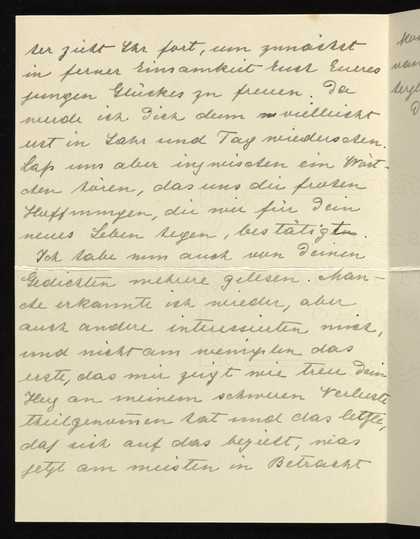 ter zieht Ihr fort, um zunächst
in ferner Einsamkeit Euch Eures
jungen Glückes zu freuen. Da
werde ich Dich denn vielleicht
erst in Jahr und Tag wiedersehen.
Laß uns aber inzwischen ein Wört-
chen hören, das uns die frohen
Hoffnungen, die wir für Dein
neues Leben hegen, bestätigt.
Ich habe nun auch von Deinen
Gedichten mehrere gelesen. Man-
che erkannte ich wieder, aber
auch andere interessierten mich,
und nicht am wenigsten das
erste, das mir zeigt wie treu Dein
Herz an meinem schweren Verluste
theilgenommen hat und das letzte,
daß sich auf das bezieht, was
jetzt am meisten in Betracht